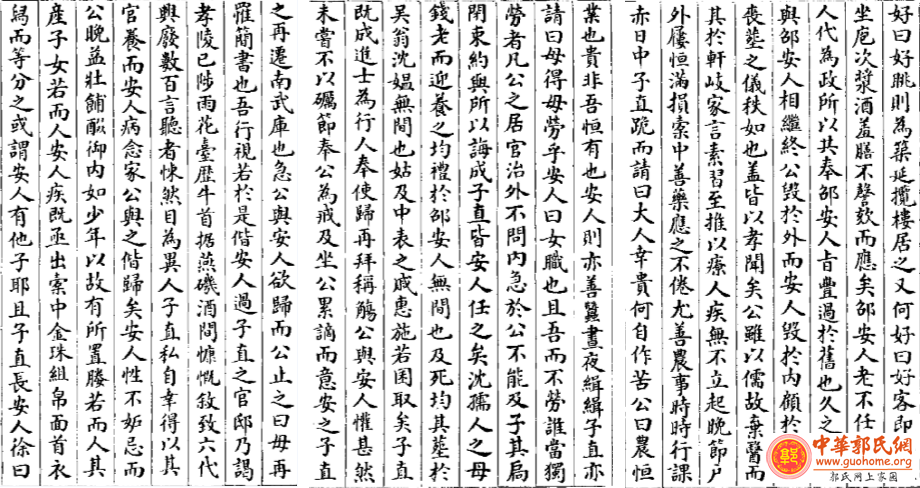 好曰好眺則為築延攬樓居之又何好曰好客即
坐庖次漿酒羞膳不謦欬而應矣邵安人老不任
人代為政所以共奉邵安人旨豐過於舊也久之
與邵安人相繼終公毀於外而安人毀於內顧於
喪塟之儀秩如也蓋皆以孝聞矣公雖以儒故棄醫而
其於軒岐家言素習至推以療人疾無不立起晚節戶
外屨恒滿損索中善藥應之不倦尤善農事時時行課
赤日中子直跪而請曰大人幸貴何自作苦公曰農恒
業也貴非吾恒有也安人則亦善蠶晝夜緝緝子直亦
請曰母得毋勞乎安人曰女職也且吾而不勞誰當獨
勞者凡公之居官治外不問內急於公不能及子其扃
閈束約與所以誨成子直皆安人任之矣沈孺人之母
錢老而迎養之均禮於邵安人無間也及死均其塟於
吳翁沈媼無間也姑及中表之戚惠施若囷取矣子直
既成進士為行人奉使歸再拜稱觴公與安人懽甚然
未嘗不以礪節奉公為戒及坐公累謫而意安之子直
之再遷南武庫也急公與安人欲歸而公止之曰毋再
罹簡書也吾行視若於是偕安人過子直之官邸乃謁
孝陵已陟雨花臺歷牛首据燕磯酒間慷慨敘致六代
興廢數百言聽者悚然目為異人子直私自幸得以其
官養而安人病念家公與之偕歸矣安人性不妬忌而
公晚益壯餔酖仰內如少年以故有所置媵若而人其
產子女若而人安人疾既亟出索中金珠組帛面首衣
舄而等分之或謂安人有他子耶且子直長安人徐曰
中華郭氏網
www.guohome.org
郭氏网上家园